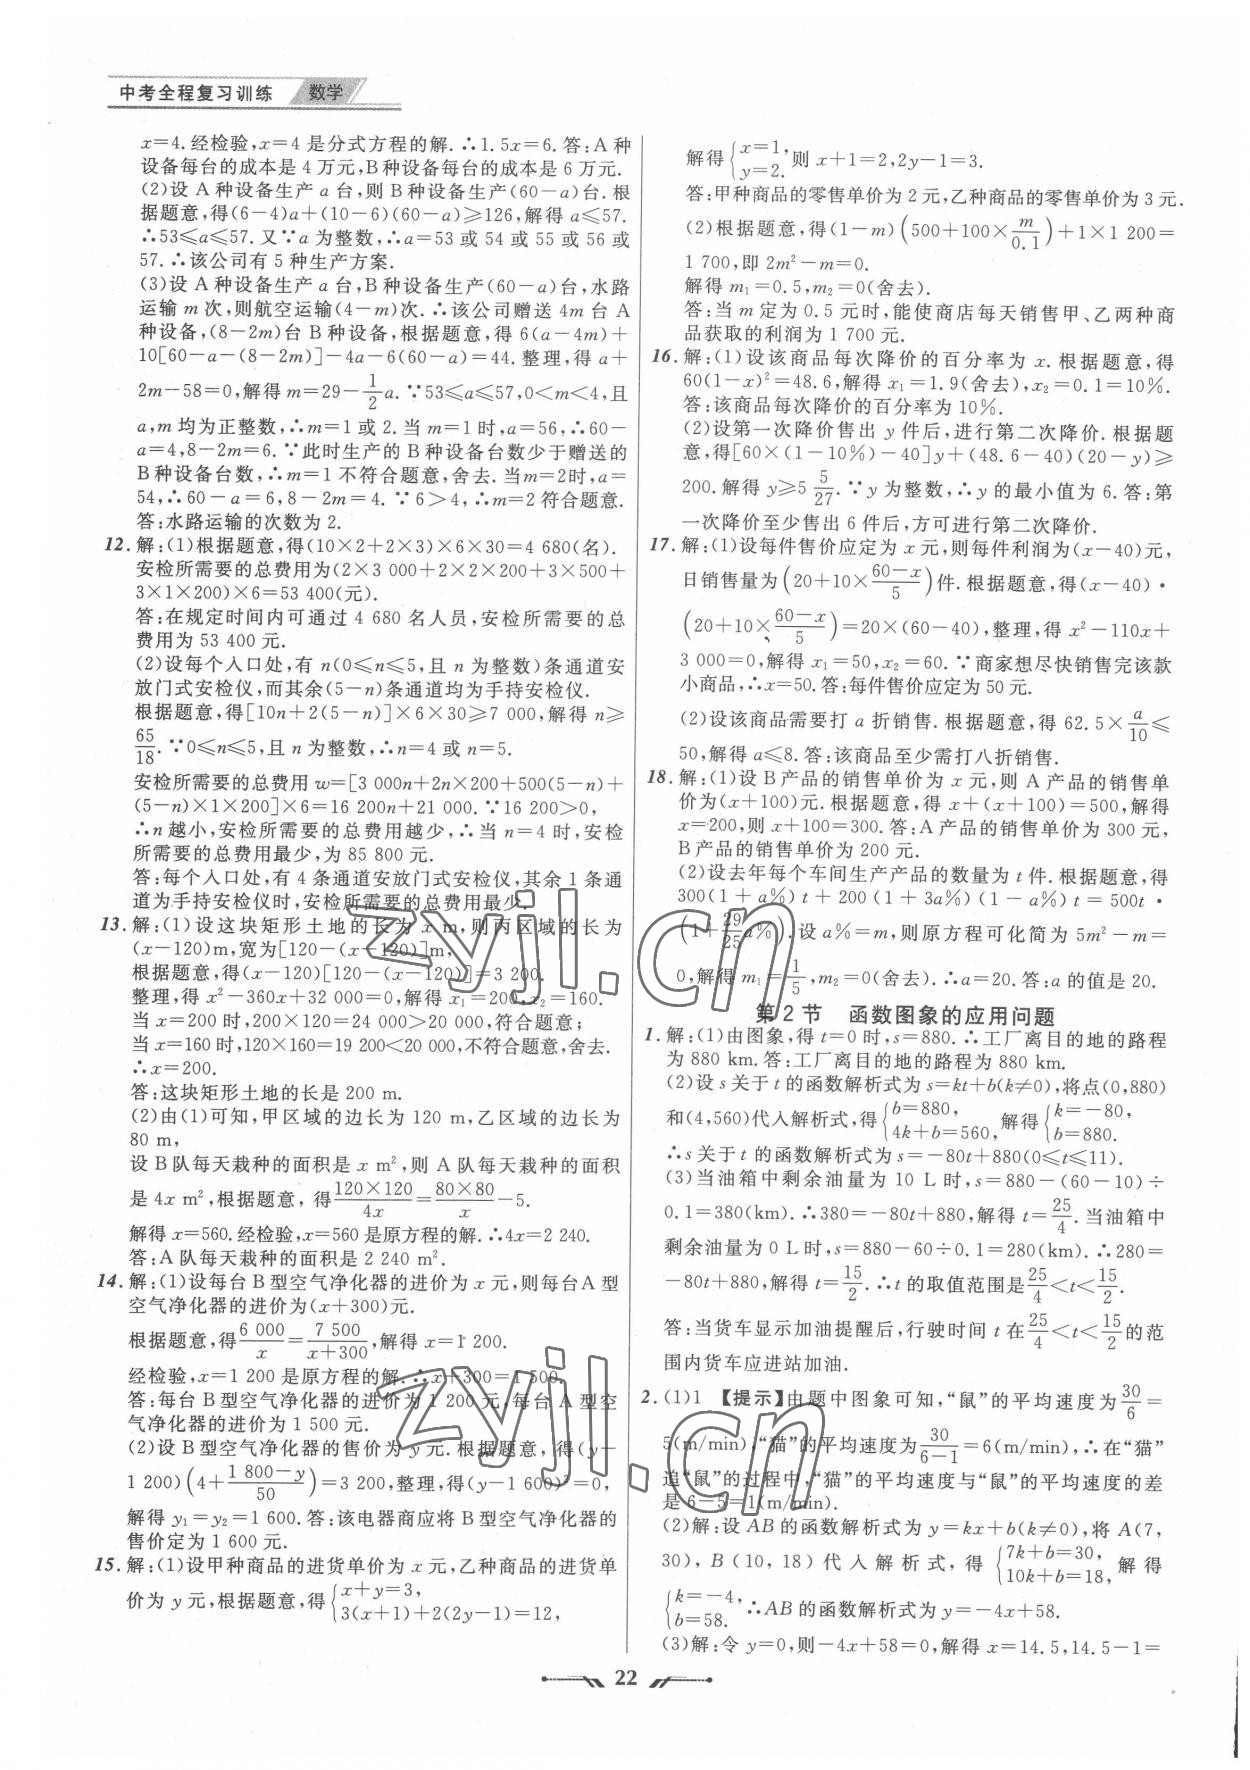 中考全程复习训练 数学
x=4.经检验,x=4 是分式方程的解.∴1.5x=6.答:A 种
设备每台的成本是 4 万元,B 种设备每台的成本是 6 万元.
(2)设 A 种设备生产 a 台,则 B 种设备生产(60-a)台.根
据题意,得(6-4)a+(10-6)(60-a)≥126,解得 a≤57.
∴53≤a≤57.又∵a 为整数,∴a=53 或 54 或 55 或 56 或
57.∴该公司有 5 种生产方案.
(3)设 A 种设备生产 a 台,B 种设备生产(60-a)台,水路
运输 m 次,则航空运输(4-m)次.∴该公司赠送 4m 台 A
种设备,(8-2m)台 B 种设备,根据题意,得 6(a-4m)+
10[60-a-(8-2m)]-4a-6(60-a)=44.整理,得 a+
2m-58=0,解得 m=29-1/2a.∵53≤a≤57,0<m<4,且
a,m 均为正整数,∴m=1 或 2.当 m=1 时,a=56,∴60-
a=4,8-2m=6.∵此时生产的 B 种设备台数少于赠送的
B 种设备台数,∴m=1 不符合题意,舍去.当 m=2时,a=
54,∴60-a=6,8-2m=4.∵6>4,∴m=2 符合题意.
答:水路运输的次数为 2.
12.解:(1)根据题意,得(10×2+2×3)×6×30=4 680(名).
安检所需要的总费用为(2×3 000+2×2×200+3×500+
3×1×200)×6=53 400(元).
答:在规定时间内可通过 4 680 名人员,安检所需要的总
费用为 53 400 元.
(2)设每个人口处,有 n(0≤n≤5,且 n 为整数)条通道安
放门式安检仪,而其余(5-n)条通道均为手持安检仪.
根据题意,得[10n+2(5-n)]×6×30≥7 000,解得 n≥
65/18.∵0≤n≤5,且 n 为整数,∴n=4 或 n=5.
安检所需要的总费用 w=[3 000n+2n×200+500(5-n)+
(5-n)×1×200]×6=16 200n+21 000.∵16 200>0,
∴n 越小,安检所需要的总费用越少,∴当 n=4 时,安检
所需要的总费用最少,为 85 800 元.
答:每个人口处,有 4 条通道安放门式安检仪,其余 1 条通道
为手持安检仪时,安检所需要的总费用最少.
13.解:(1)设这块矩形土地的长为 x m,则丙区域的长为
(x-120)m,宽为[120-(x-120)]m,
根据题意,得(x-120)[120-(x-120)]=3 200.
整理,得 x²-360x+32 000=0,解得 x₁=200,x₂=160.
当 x=200 时,200×120=24 000>20 000,符合题意;
当 x=160 时,120×160=19 200<20 000,不符合题意,舍去.
∴x=200.
答:这块矩形土地的长是 200 m.
(2)由(1)可知,甲区域的边长为 120 m,乙区域的边长为
80 m,
设 B 队每天栽种的面积是 x m²,则 A 队每天栽种的面积
是 4x m²,根据题意,得 120×120/4x=80×80/x-5.
解得 x=560.经检验,x=560 是原方程的解.∴4x=2 240.
答:A 队每天栽种的面积是 2 240 m².
14.解:(1)设每台 B 型空气净化器的进价为 x 元,则每台 A 型
空气净化器的进价为(x+300)元.
根据题意,得6 000/x=7 500/(x+300),解得 x=1 200.
经检验,x=1 200 是原方程的解.∴x+300=1 500.
答:每台 B 型空气净化器的进价为 1 200 元,每台 A 型空
气净化器的进价为 1 500 元.
(2)设 B 型空气净化器的售价为 y 元.根据题意,得(y-
1 200)(4+(1 800-y)/50)=3 200,整理,得(y-1 600)²=0,
解得 y₁=y₂=1 600.答:该电器商应将 B 型空气净化器的
售价定为 1 600 元.
15.解:(1)设甲种商品的进货单价为 x 元,乙种商品的进货单
价为 y 元,根据题意,得{x+y=3, 3(x+1)+2(2y-1)=12,
解得{x=1, y=2. 则 x+1=2,2y-1=3.
答:甲种商品的零售单价为 2 元,乙种商品的零售单价为 3 元.
(2)根据题意,得(1-m)(500+100×m/0.1)+1×1 200=
1 700,即 2m²-m=0.
解得 m₁=0.5,m₂=0(舍去).
答:当 m 定为 0.5 元时,能使商店每天销售甲、乙两种商
品获取的利润为 1 700 元.
16.解:(1)设该商品每次降价的百分率为 x.根据题意,得
60(1-x)²=48.6,解得 x₁=1.9(舍去),x₂=0.1=10%.
答:该商品每次降价的百分率为 10%.
(2)设第一次降价售出 y 件后,进行第二次降价.根据题
意,得[60×(1-10%)-40]y+(48.6-40)(20-y)≥
200.解得 y≥5 5/27.∵y 为整数,∴y 的最小值为 6.答:第
一次降价至少售出 6 件后,方可进行第二次降价.
17.解:(1)设每件售价应定为 x 元,则每件利润为(x-40)元,
日销售量为(20+10×(60-x)/5)件.根据题意,得(x-40)·
(20+10×(60-x)/5)=20×(60-40),整理,得 x²-110x+
3 000=0,解得 x₁=50,x₂=60.∵商家想尽快销售完该款
小商品,∴x=50.答:每件售价应定为 50 元.
(2)设该商品需要打 a 折销售.根据题意,得 62.5×a/10≤
50,解得 a≤8.答:该商品至少需打八折销售.
18.解:(1)设 B 产品的销售单价为 x 元,则 A 产品的销售单
价为(x+100)元.根据题意,得 x+(x+100)=500,解得
x=200,则 x+100=300.答:A 产品的销售单价为 300 元,
B 产品的销售单价为 200 元.
(2)设去年每个车间生产产品的数量为 t 件.根据题意,得
300(1+a%)t+200(1+3a%)(1-a%)=500t·
(1+29/25a%).设 a%=m,则原方程可化简为 5m²-m=
0,解得 m₁=1/5,m₂=0(舍去).∴a=20.答:a 的值是 20.
第 2 节 函数图象的应用问题
1.解:(1)由图象,得 t=0 时,s=880.∴工厂离目的地的路程
为 880 km.答:工厂离目的地的路程为 880 km.
(2)设 s 关于 t 的函数解析式为 s=kt+b(k≠0),将点(0,880)
和(4,560)代入解析式,得{b=880, 4k+b=560, 解得{k=-80, b=880.
∴s 关于 t 的函数解析式为 s=-80t+880(0≤t≤11).
(3)当油箱中剩余油量为 10 L 时,s=880-(60-10)÷
0.1=380(km).∴380=-80t+880,解得 t=25/4.当油箱中
剩余油量为 0 L 时,s=880-60÷0.1=280(km).∴280=
-80t+880,解得 t=15/2.∴t 的取值范围是25/4<t<15/2.
答:当货车显示加油提醒后,行驶时间 t 在25/4<t<15/2的范
围内货车应进站加油.
2.(1)1 【提示】由题中图象可知,“鼠”的平均速度为30/6=
5(m/min),“猫”的平均速度为30/(6-1)=6(m/min),∴在“猫”
追“鼠”的过程中,“猫”的平均速度与“鼠”的平均速度的差
是 6-5=1(m/min).
(2)解:设 AB 的函数解析式为 y=kx+b(k≠0),将 A(7,
30),B(10,18)代入解析式,得{7k+b=30, 10k+b=18, 解得
{k=-4, b=58. ∴AB 的函数解析式为 y=-4x+58.
(3)解:令 y=0,则-4x+58=0,解得 x=14.5,14.5-1=
22
zyjl.cn
zyjl.cn